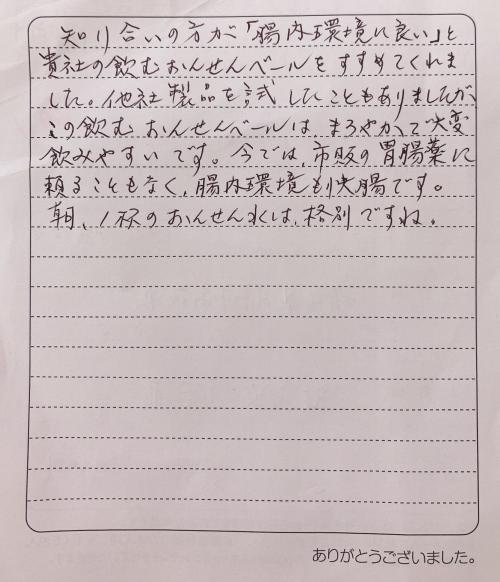 知り合いの方が「腸内環境に良い」と
貴社の飲むおんせんベールをすすめてくれま
した。他社製品を試したこともありましたが
この飲むおんせんベールは、まろやかで大変
飲みやすいです。今では、市販の胃腸薬に
頼ることもなく、腸内環境も快腸です。
朝、1杯のおんせん水は、格別ですね。
ありがとうございました。